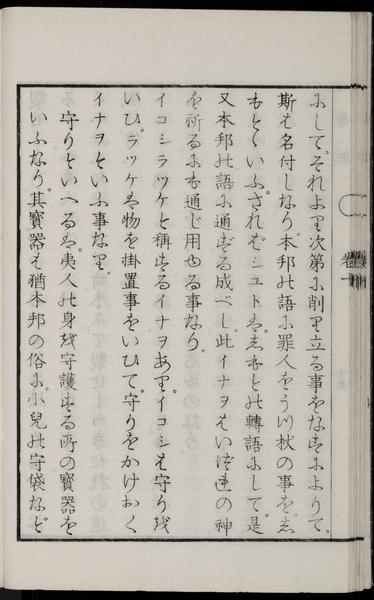 にして。それより次第に削り立る事をなすによりて。
斯は名付しなり。本邦の語に罪人をうつ杖の事を。志
もとゝいふ。されはシユトは。志もとの轉語にして。是
又本邦の語に通する成べし。此イナヲはいつれの神
を祈るにも通し用ゆる事なり。
イコシラツケと稱するイナヲあり。イコシは守りを
いひ。ラツケは物を掛置事をいひて。守りをかけおく
イナヲといふ事なり。
守りといへるは。夷人の身を守護する所の寶器を
いふなり。其寶器は猶本邦の俗に。小兒の守袋など